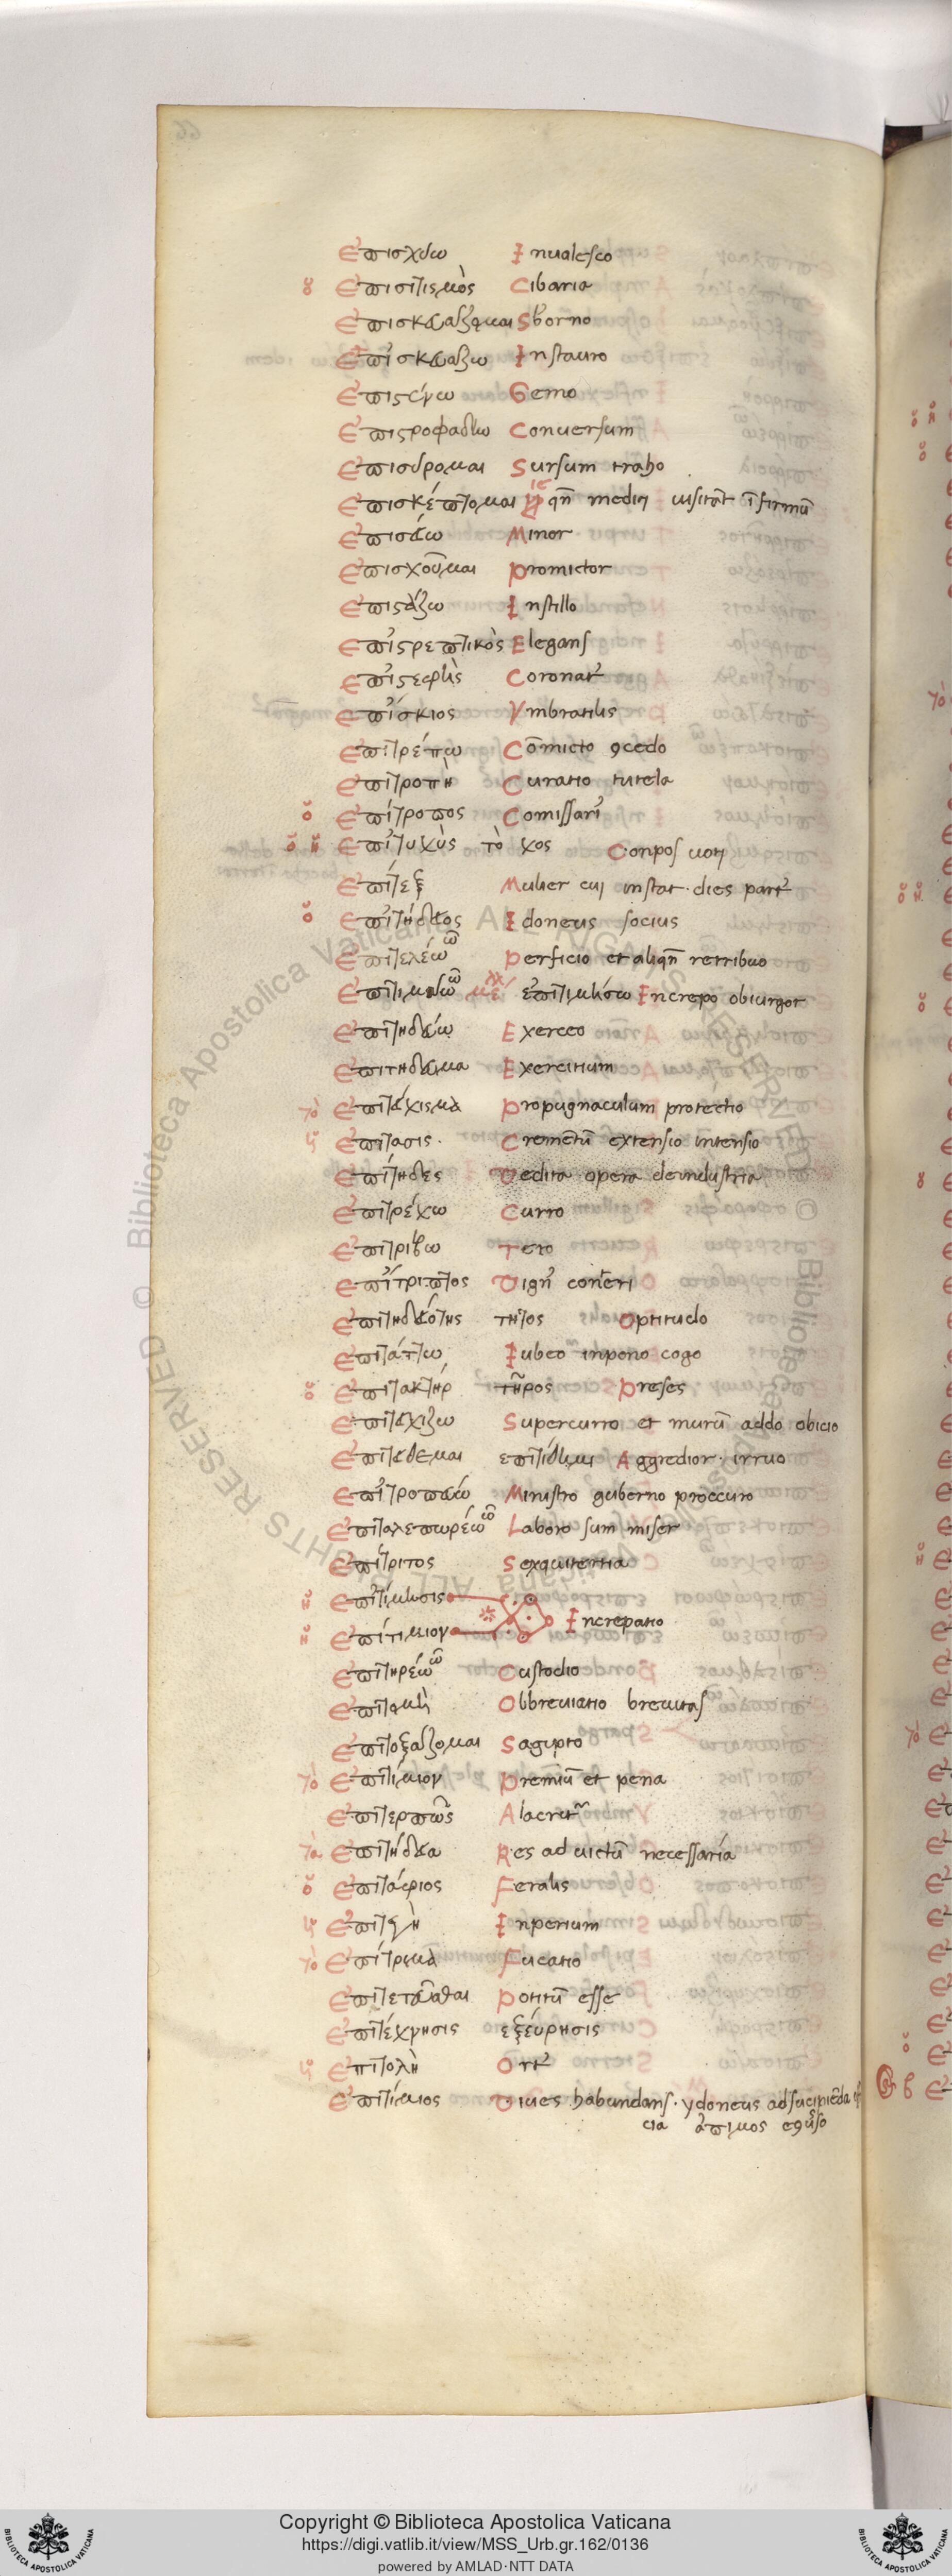 Ἐπισχύω Inualesco
ὁ Ἐπισιτισμὸς Cibaria
Ἐπισκευάζομαι Sborno
Ἐπισκευάζω Instauro
Ἐπιστένω Gemo
Ἐπιστροφάδην Conuersum
Ἐπισύρομαι Sursum traho
Ἐπισκέπτομαι qn̄ medici uisitāt īfirmū
Ἐπισείω Minor
Ἐπισχοῦμαι Promictor
Ἐπιστάζω Instillo
Ἐπιστρεπτικὸς Elegans
Ἐπιστεφὴς Coronat᾽
Ἐπίσκιος Vmbratilis
Ἐπιτρέπω Cōmicto ꝯcedo
Ἐπιτροπὴ Curatio tutela
ὁ Ἐπίτροπος Comissari᾽
ὁ ἡ Ἐπιτυχὺς τὸ χος Conpos uoti
Ἐπίτεξ Mulier cuj instat dies part᾽
ὁ Ἐπιτήδειος Idoneus socius
Ἐπιτελέω ῶ Perficio et aliqn̄ retribuo
Ἐπιτιμάω ῶ μέλ ἐπιτιμήσω Increpo obiurgor
Ἐπιτηδεύω Exerceo
Ἐπιτήδευμα Exercitium
τὸ Ἐπιτείχισμα Propugnaculum protectio
ἡ Ἐπίτασις Cremētū extensio intensio
Ἐπίτηδες Dedita opera deindustria
Ἐπιτρέχω Curro
Ἐπιτρίβω Tero
Ἐπίτριπτος Dign᾽ conteri
Ἐπιτηδειότης τητος Optitudo
Ἐπιτάττω Iubeo inpono cogo
ὁ Ἐπιτακτὴρ τῆρος Preses
Ἐπιτειχίζω Supercurro et murū addo obicio
Ἐπιτίθεμαι ἐπιτίθημι Aggredior irruo
Ἐπιτροπεύω Ministro guberno proccuro
Ἐπιταλεπωρέω ῶ Laboro sum miser
Ἐπίτριτος Sexquitertia
ἡ Ἐπιτίμησις
ἡ Ἐπιτίμιον Increpatio
Ἐπιτηρέω ῶ Custodio
Ἐπιτομὴ Obbreuiatio breuitas
Ἐπιτοξάζομαι Sagipto
τὸ Ἐπιτίμιον Premiū et pena
Ἐπιτερπῶς Alacrit᷉
τὰ Ἐπιτήδεια Res ad uictū necessaria
ὁ Ἐπιτάφιος Feralis
ἡ Ἐπιταγὴ Inperium
τὸ Ἐπίτριμμα Fucatio
Ἐπιτετεῦχθαι Potitū esse
Ἐπιτέχνησις ἐξεύρησις
ἡ Ἐπιτολὴ Ort᾽
Ἐπιτίμιος Diues habundans ydoneus ad sucipiēda
cia ἄτιμος